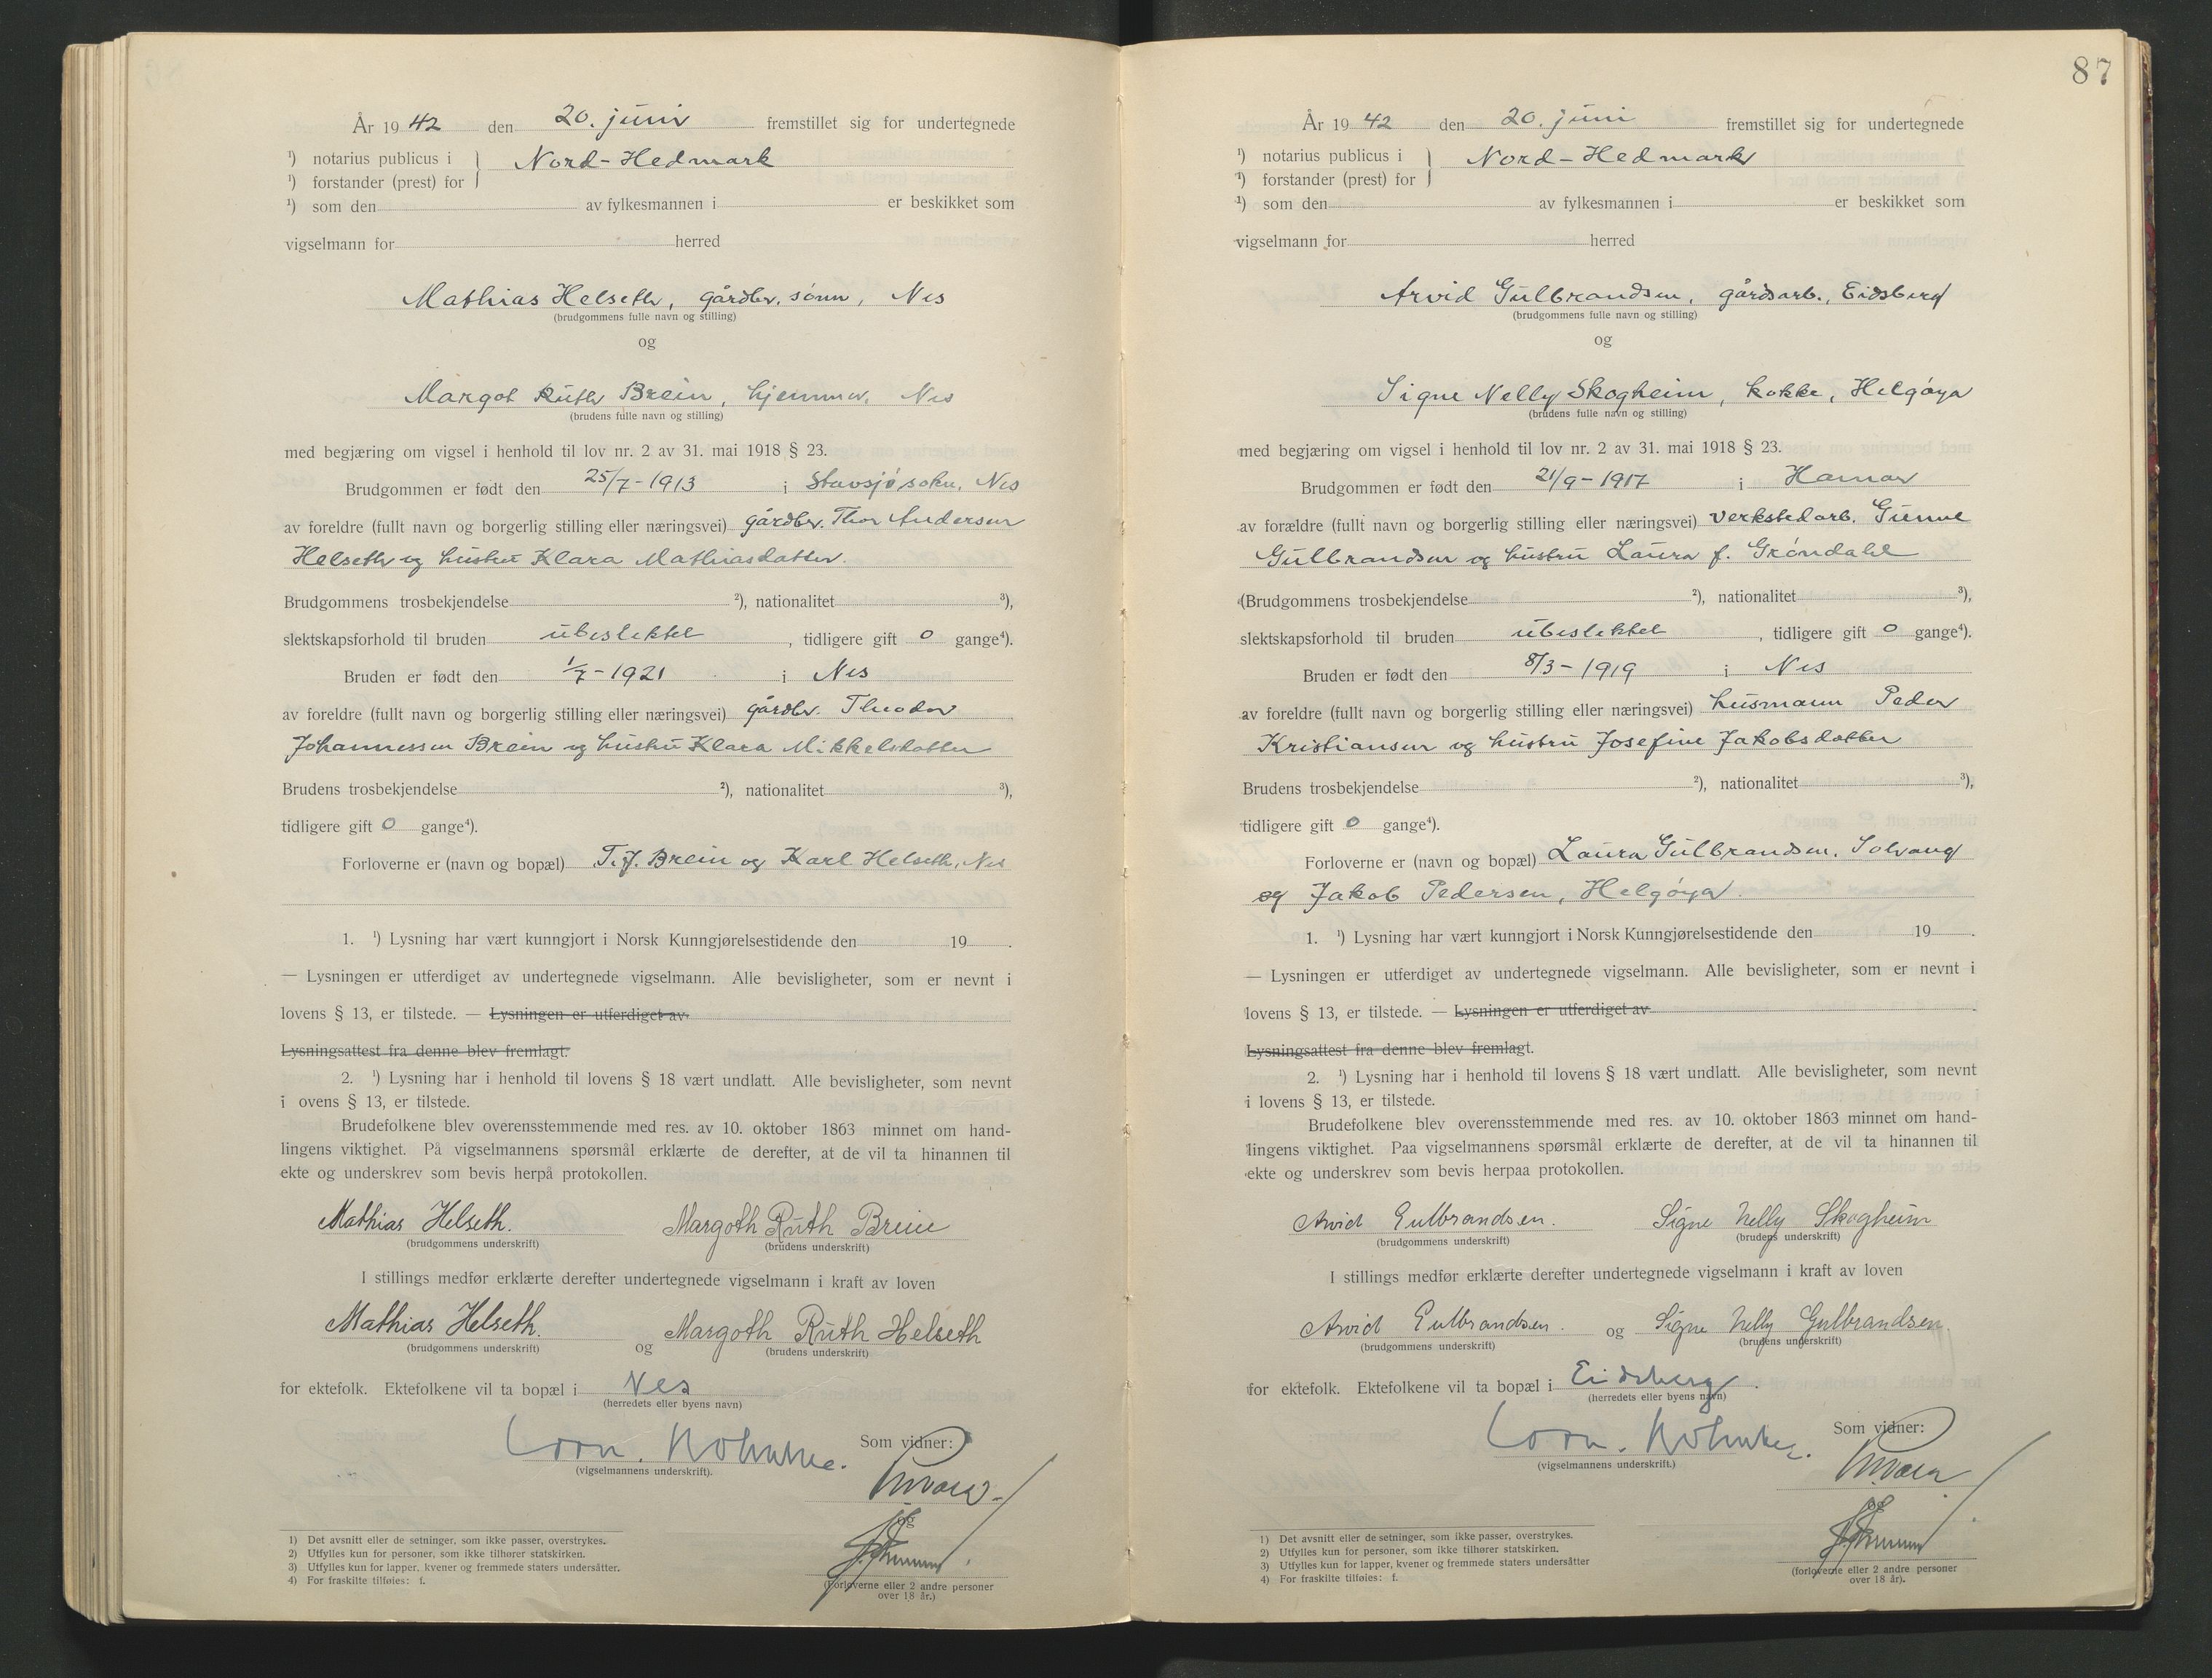 År 19 42 den 20. juni fremstillet sig for undertegnede
¹) notarius publicus i } Nord-Hedmark
¹) forstander (prest) for
¹) som den av fylkesmannen i er beskikket som
vigselmann for herred
Mathias Helseth, gårdbr. sønn, Nes
(brudgommens fulle navn og stilling)
og
Margot Ruth Brein, hjemmev. Nes
(brudens fulle navn og stilling)
med begjæring om vigsel i henhold til lov nr. 2 av 31. mai 1918 § 23.
Brudgommen er født den 25/7-1913 i Stavsjø sokn, Nes
av foreldre (fullt navn og borgerlig stilling eller næringsvei) gårdbr. Thor Andersen
Helseth og hustru Klara Mathiasdatter.
Brudgommens trosbekjendelse ²), nationalitet ³),
slektskapsforhold til bruden ubeslektet, tidligere gift 0 gange⁴).
Bruden er født den 1/7-1921 i Nes
av foreldre (fullt navn og borgerlig stilling eller næringsvei) gårdbr. Theodor
Johannessen Brein og hustru Klara Mikkelsdatter
Brudens trosbekjendelse ²), nationalitet ³),
tidligere gift 0 gange⁴).
Forloverne er (navn og bopæl) T.J. Brein og Karl Helseth, Nes
1. ¹) Lysning har vært kunngjort i Norsk Kunngjørelsestidende den 19 .
— Lysningen er utferdiget av undertegnede vigselmann. Alle bevisligheter, som er nevnt i
lovens § 13, er tilstede. — Lysningen er utferdiget av
Lysningsattest fra denne blev fremlagt.
2. ¹) Lysning har i henhold til lovens § 18 vært undlatt. Alle bevisligheter, som nevnt
i ovens § 13, er tilstede.
Brudefolkene blev overensstemmende med res. av 10. oktober 1863 minnet om hand-
lingens viktighet. På vigselmannens spørsmål erklærte de derefter, at de vil ta hinannen til
ekte og underskrev som bevis herpå protokollen.
Mathias Helseth. Margoth Ruth Brein
(brudgommens underskrift) (brudens underskrift)
I stillings medfør erklærte derefter undertegnede vigselmann i kraft av loven
Mathias Helseth. og Margoth Ruth Helseth
(brudgommens underskrift) (brudens underskrift)
for ektefolk. Ektefolkene vil ta bopæl i Nes
(herredets eller byens navn)
Som vidner:
(vigselmannens underskrift).
og
1) Det avsnitt eller de setninger, som ikke passer, overstrykes.
2) Utfylles kun for personer, som ikke tilhører statskirken.
3) Utfylles kun for lapper, kvener og fremmede staters undersåtter.
4) For fraskilte tilføies: f.
(Forloverne eller 2 andre personer
over 18 år.)
87
År 19 42 den 20. juni fremstillet sig for undertegnede
¹) notarius publicus i } Nord-Hedmark
¹) forstander (prest) for
¹) som den av fylkesmannen i er beskikket som
vigselmann for herred
Arvid Gulbrandsen, gårdsarb., Eidsberg
(brudgommens fulle navn og stilling)
og
Signe Nelly Skogheim, kokke, Helgøya
(brudens fulle navn og stilling)
med begjæring om vigsel i henhold til lov nr. 2 av 31. mai 1918 § 23.
Brudgommen er født den 21/9-1917 i Hamar
av forældre (fullt navn og borgerlig stilling eller næringsvei) verkstedarb. Gunne
Gulbrandsen og hustru Laura f. Grøndahl
(Brudgommens trosbekjendelse ²), nationalitet ³),
slektskapsforhold til bruden ubeslektet, tidligere gift 0 gange⁴).
Bruden er født den 8/3-1919 i Nes
av foreldre (fullt navn og borgerlig stilling eller næringsvei) husmann Peder
Kristiansen og hustru Josefine Jakobsdatter
Brudens trosbekjendelse ²), nationalitet ³),
tidligere gift 0 gange⁴).
Forloverne er (navn og bopæl) Laura Gulbrandsen, Solvang
og Jakob Pedersen, Helgøya.
1. ¹) Lysning har vært kunngjort i Norsk Kunngjørelsestidende den 19 .
— Lysningen er utferdiget av undertegnede vigselmann. Alle bevisligheter, som er nevnt i
lovens § 13, er tilstede. — Lysningen er utferdiget av .
Lysningsattest fra denne blev fremlagt.
2. ¹) Lysning har i henhold til lovens § 18 vært undlatt. Alle bevisligheter, som nevnt
i lovens § 13, er tilstede.
Brudefolkene blev overensstemmende med res. av 10. oktober 1863 minnet om hand-
lingens viktighet. Paa vigselmannens spørsmål erklærte de derefter, at de vil ta hinannen til
ekte og underskrev som bevis herpaa protokollen.
Arvid Gulbrandsen. Signe Nelly Skogheim
(brudgommens underskrift) (brudens underskrift)
I stillings medfør erklærte derefter undertegnede vigselmann i kraft av loven
Arvid Gulbrandsen. og Signe Nelly Gulbrandsen.
(brudgommens underskrift) (brudens underskrift)
for ektefolk. Ektefolkene vil ta bopæl i Eidsberg.
(herredets eller byens navn)
Som vidner:
(vigselmannens underskrift.)
og
1) Det avsnitt eller de setninger, som ikke passer, overstrykes.
2) Utfylles kun for personer, som ikke tilhører statskirken.
3) Utfylles kun for lapper, kvener og fremmede staters undersåtter
4) For fraskilte tilføies: f.
(forloverne eller 2 andre personer
over 18 år).